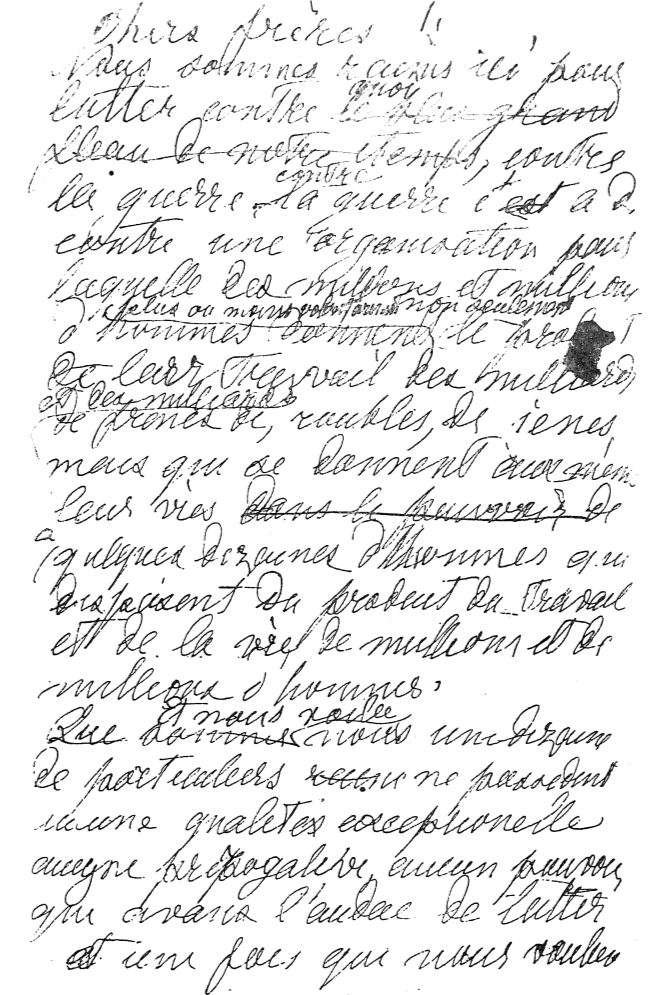 Chers frères !
Nous sommes réunis ici pour
quoi
lutter contre le plus grand
fléau de notre temps, contre
contre
la guerre. la guerre c'est à d.
contre une organisation pour
laquelle des millions et millions
plus ou moins volontairement non seulement
d'hommes donnent le
de leur travail des milliards
et des milliards
de francs de, roubles, de ienes,
mais qui se donnent eux même
leur vies dans le pouvoir de
a
quelques dizaines d'hommes qui
disposent du produit du travail
et de la vie de millions et de
millions d'hommes.
Et nous voilà
Que sommes nous une dizaine
de particuliers ne possedent
aucune qualités exceptionelle
aucune prérogative, aucun pouvoir
qui avons l'audac de lutter
et une fois que nous voulons